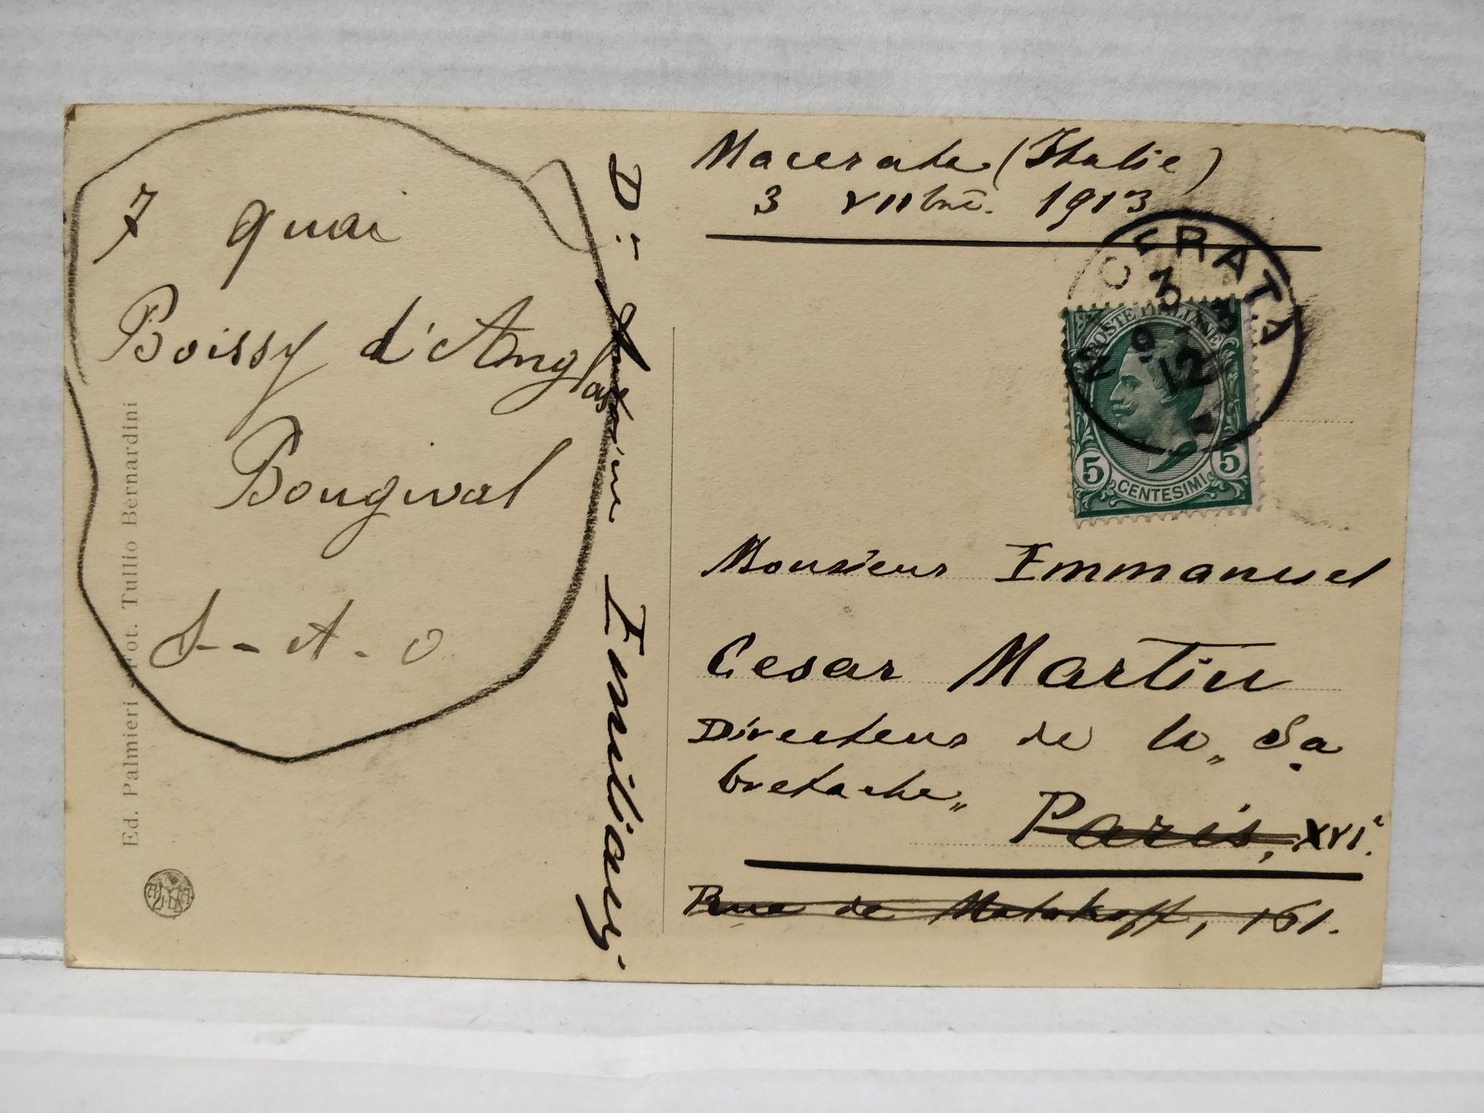 7 quai
Boissy d'Anglas
Bougival
S-et-O
Ed. Palmieri - Fot. Tullio Bernardini
D:r Antoine Emiliani
Macerata (Italie)
3 VIIbre. 1913
MACERATA
3
9
13
12
POSTE ITALIANE
5 5
CENTESIMI
Monsieur Emmanuel
Cesar Martin
Directeur de la „Sa
bretache„
Paris, XVI.e
Rue de Malakoff, 161.